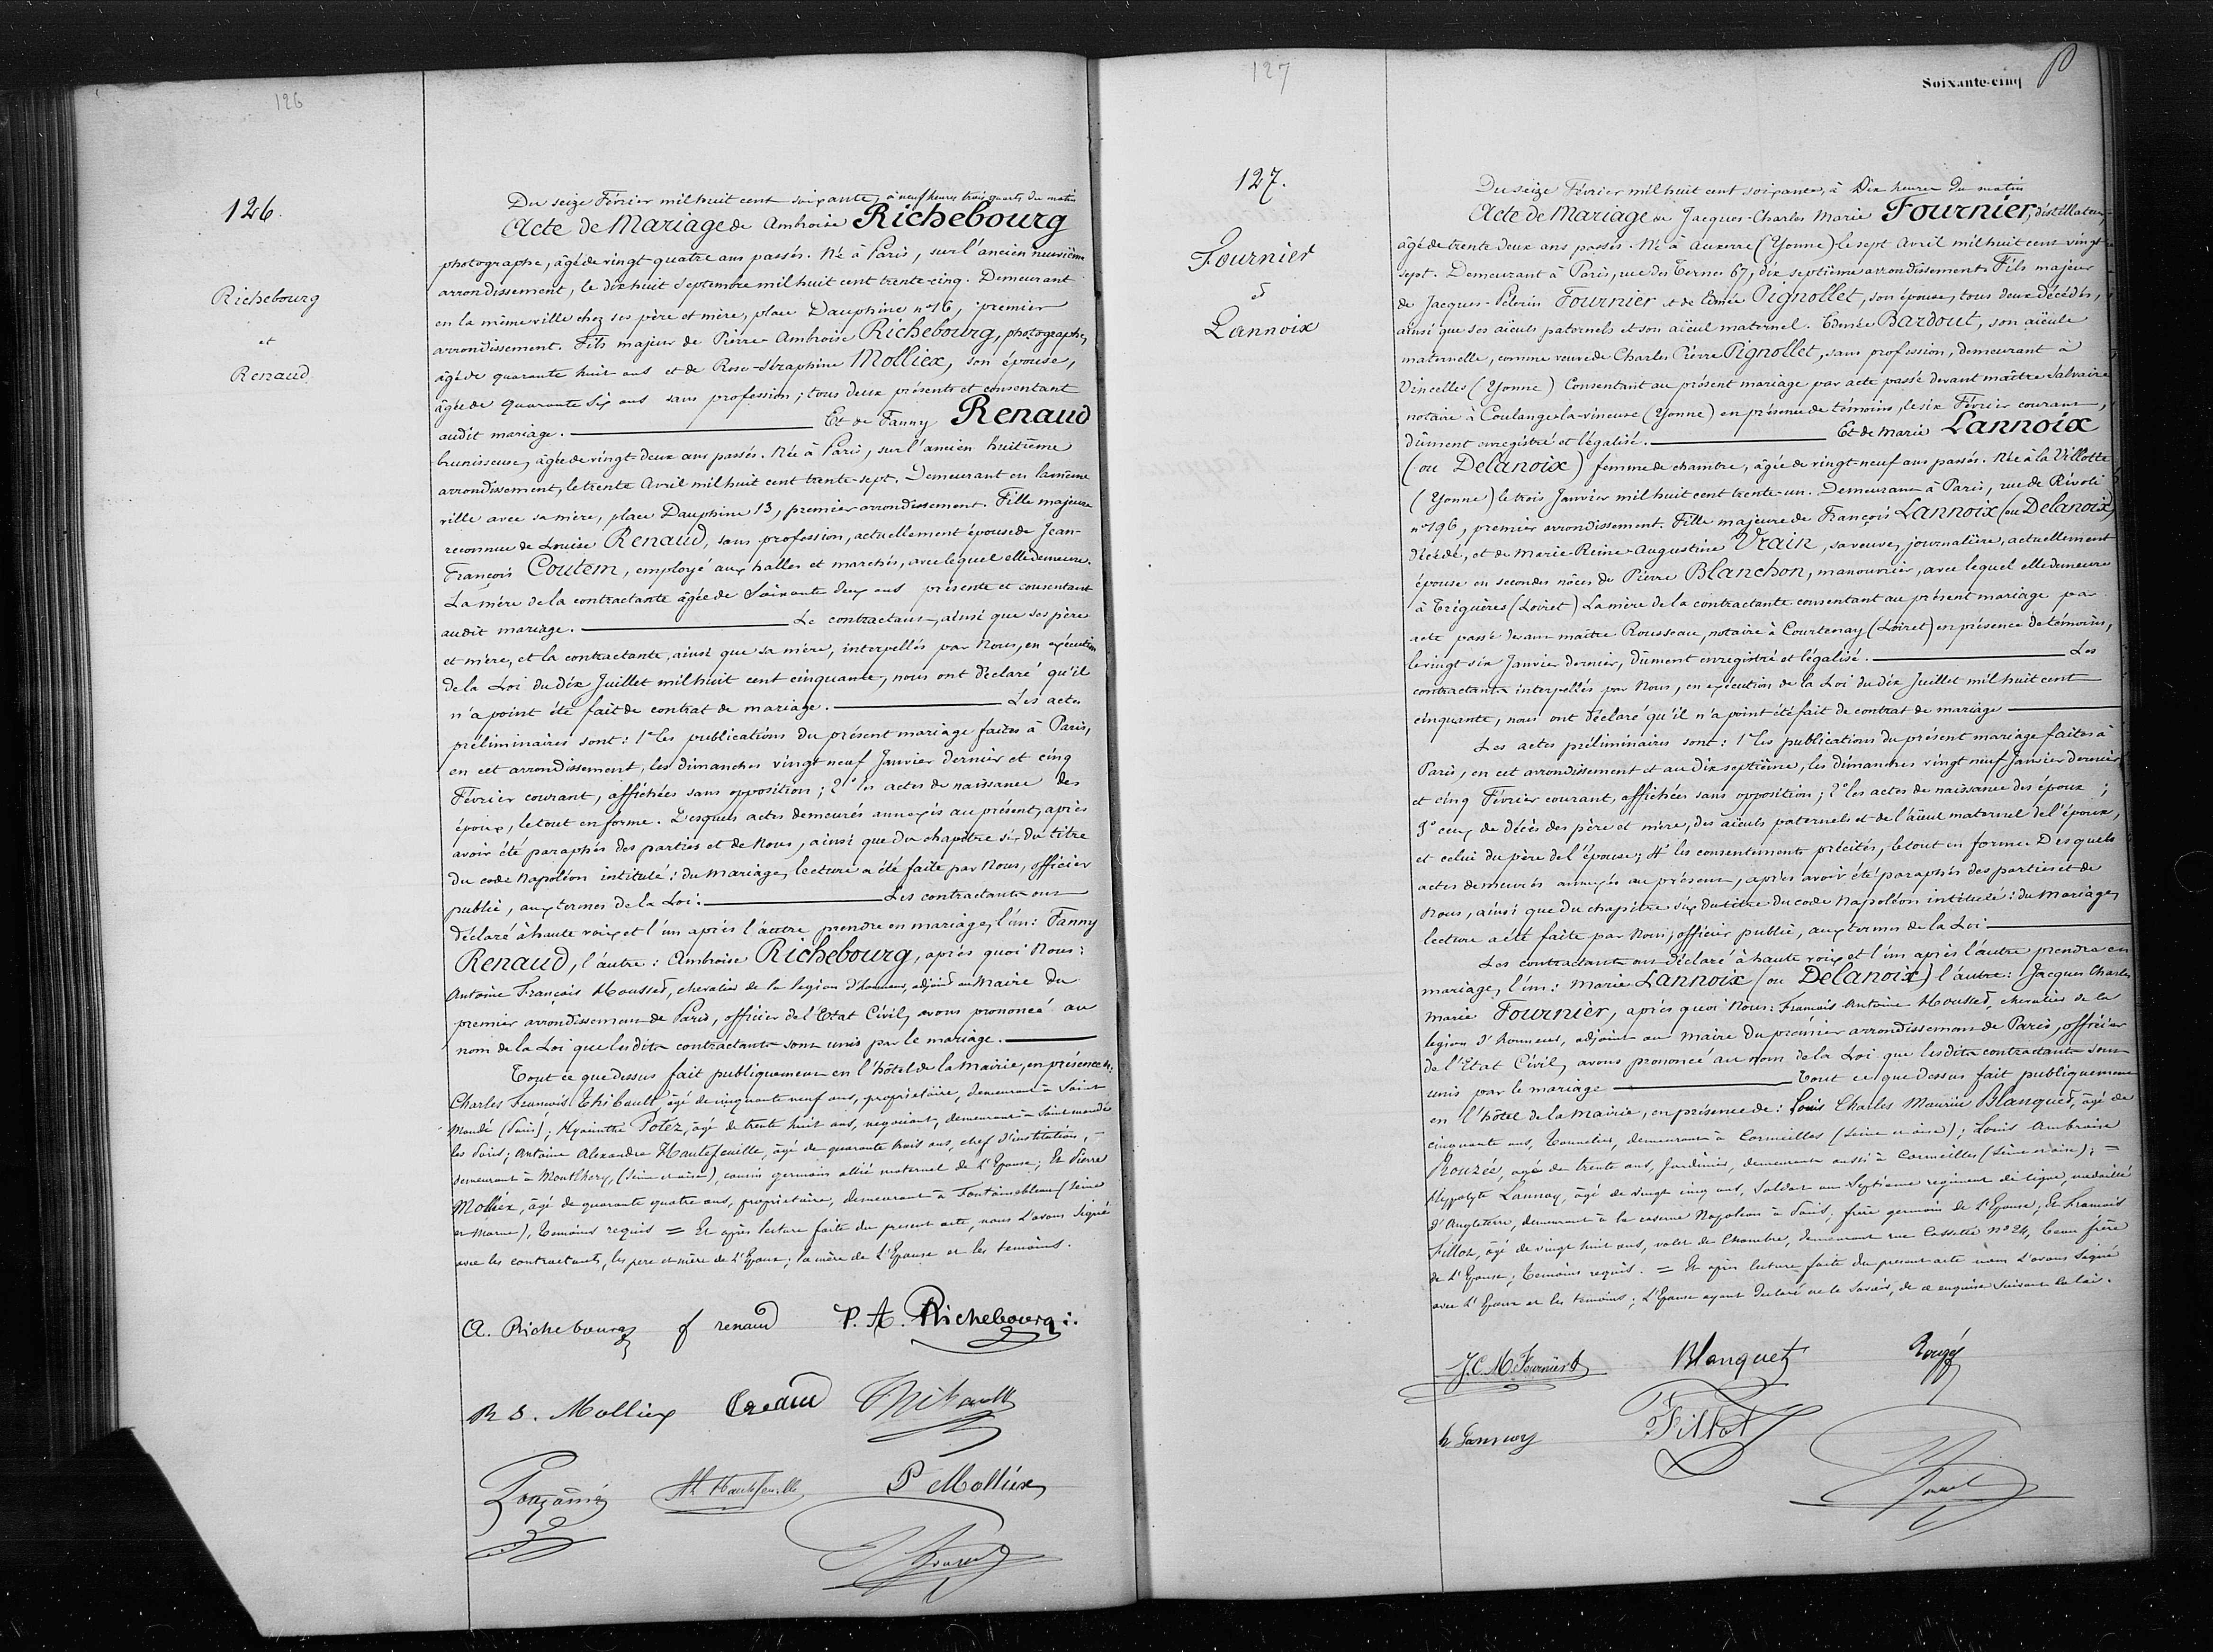 126
126.
Richebourg
et
Renaud
Du seize Février mil huit cent soixante, à neuf heures trois quarts du matin
Acte de Mariage de Ambroise Richebourg
photographe, âgé de vingt quatre ans passés. Né à Paris, sur l'ancien neuvième
arrondissement, le dix huit Septembre mil huit cent trente cinq. Demeurant
en la même ville chez ses père et mère, place Dauphine n° 16, premier
arrondissement. Fils majeur de Pierre Ambroise Richebourg, photographe,
âgé de quarante huit ans et de Rose-Séraphine Molliex, son épouse,
âgée de quarante six ans sans profession; tous deux présents et consentant
audit mariage. Et de Fanny Renaud
brunisseuse, âgée de vingt-deux ans passés. Née à Paris, sur l'ancien huitième
arrondissement, le trente Avril mil huit cent trente-sept. Demeurant en la même
ville avec sa mère, place Dauphine 13, premier arrondissement. Fille majeure
reconnue de Louise Renaud, sans profession, actuellement épouse de Jean-
François Coutem, employé aux halles et marchés, avec lequel elle demeure.
La mère de la contractante âgée de Soixante deux ans présente et consentant
audit mariage. Le contractant, ainsi que ses père
et mère, et la contractante, ainsi que sa mère, interpellés par Nous, en exécution
de la Loi du dix Juillet mil huit cent cinquante, nous ont déclaré qu'il
n'a point été fait de contrat de mariage. Les actes
préliminaires sont: 1° les publications du présent mariage faites à Paris,
en cet arrondissement, les dimanches vingt neuf Janvier dernier et cinq
Février courant, affichées sans opposition; 2° les actes de naissance des
époux, le tout en forme. Desquels actes demeurés annexés au présent, après
avoir été paraphés des parties et de Nous, ainsi que du chapitre six du titre
du code Napoléon intitulé: du Mariage, lecture a été faite par Nous, officier
public, aux termes de la Loi. Les contractants ont
déclaré à haute voix et l'un après l'autre prendre en mariage, l'un: Fanny
Renaud, l'autre: Ambroise Richebourg, après quoi Nous:
Antoine François Housset, chevalier de la legion d'honneur, adjoint au Maire du
premier arrondissement de Paris, officier de l'Etat Civil, avons prononcé au
nom de la Loi que lesdits contractants sont unis par le mariage.
Tout ce que dessus fait publiquement en l'hôtel de la Mairie, en présence de:
Charles François Thibault, âgé de cinquante neuf ans, propriétaire, demeurant à Saint
Mandé (Paris); Hyacinthe Potez, âgé de trente huit ans, negociant, demeurant à Saint mandé
les Paris; Antoine Alexandre Hautefeuille, âgé de quarante trois ans, chef d'institution,
demeurant à Montlhery, (Seine et oise), cousin germain allié maternel de l'Epouse; Et Pierre
Molliex, âgé de quarante quatre ans, propriétaire, demeurant à Fontainebleau (Seine
et Marne), temoins requis = Et après lecture faite du present acte, nous l'avons signé
avec les contractants, les pere et mère de l'Epoux; la mère de l'Epouse et les temoins.
A. Richebourg f renaud P. A. Richebourg
R S. Molliex Thibault
A Hautefeuille P Molliex
127
Soixante-cinq
127.
Fournier
&
Lannoix
Du seize Février mil huit cent soixante, à Dix heures du matin
Acte de Mariage de Jacques-Charles Marie Fournier, distillateur,
âgé de trente deux ans passés. Né à Auxerre (Yonne) le sept Avril mil huit cent vingt
sept. Demeurant à Paris, rue des Ternes 67, dix septième arrondissement. Fils majeur
de Jacques-Pélerin Fournier et de Edmée Pignollet, son épouse, tous deux décédés,
ainsi que ses aïeuls paternels et son aïeul maternel. Edmée Bardout, son aïeule
maternelle, comme veuve de Charles Pierre Pignollet, sans profession, demeurant à
Vincelles (Yonne) Consentant au présent mariage par acte passé devant maître Salvaire
notaire à Coulange-la-vineuse (Yonne) en présence de témoins, le six Février courant,
dûment enregistré et légalisé. Et de Marie Lannoix
(ou Delanoix) femme de chambre, âgée de vingt-neuf ans passés. Née à la Villotte
(Yonne) le trois Janvier mil huit cent trente-un. Demeurant à Paris, rue de Rivoli
n° 196, premier arrondissement. Fille majeure de François Lannoix (ou Delanoix)
décédé, et de Marie Reine Augustine Vrain, sa veuve, journalière, actuellement
épouse en secondes nôces de Pierre Blanchon, manouvrier, avec lequel elle demeure
à Triguères (Loiret) La mère de la contractante consentant au présent mariage par
acte passé devant maître Rousseau, notaire à Courtenay (Loiret) en présence de témoins,
le vingt six Janvier dernier, dûment enregistré et légalisé. Les
contractants interpellés par Nous, en exécution de la Loi du dix Juillet mil huit cent
cinquante, nous ont déclaré qu'il n'a point été fait de contrat de mariage
Les actes préliminaires sont: 1° les publications du présent mariage faites à
Paris, en cet arrondissement et au dix septième, les dimanches vingt neuf Janvier dernier
et cinq Février courant, affichées sans opposition; 2° les actes de naissance des époux;
3° ceux de décès des père et mère, des aïeuls paternels et de l'aïeul maternel de l'époux,
et celui du père de l'épouse; 4° les consentements précités, le tout en forme. Desquels
actes demeurés annexés au présent, après avoir été paraphés des parties et de
Nous, ainsi que du chapitre six du titre du code Napoléon intitulé: du Mariage,
lecture a été faite par Nous, officier public, aux termes de la Loi
Les contractants ont déclaré à haute voix et l'un après l'autre prendre en
mariage, l'un: Marie Lannoix (ou Delanoix) l'autre: Jacques Charles
Marie Fournier, après quoi Nous: François Antoine Housset, chevalier de la
legion d'honneur, adjoint au Maire du premier arrondissement de Paris, officier
de l'Etat Civil, avons prononcé au nom de la Loi que lesdits contractants sont
unis par le mariage Tout ce que dessus fait publiquement
en l'hôtel de la Mairie, en présence de: Louis Charles Maurice Blanquet, âgé de
cinquante ans, Tonnelier, demeurant à Cormeilles (Seine et oise); Louis Ambroise
Rouzée, âgé de trente ans, Jardinier, demeurant aussi à Cormeilles (Seine et oise); =
Hyppolyte Launay, âgé de vingt cinq ans, Soldat au Septieme regiment de ligne, medaillé
d'Angleterre, demeurant à la caserne Napoleon à Paris, frère germain de l'Epouse; Et François
Fillot, âgé de vingt huit ans, valet de Chambre, demeurant rue Cassette n° 24, beau frère
de l'Epouse; temoins requis. = Et après lecture faite du present acte nous l'avons signé
avec l'Epoux et les temoins; l'Epouse ayant declaré ne le savoir, de ce enquise suivant la loi.
J. C. M. Fournier Blanquet Rouzé
h Launay Fillot